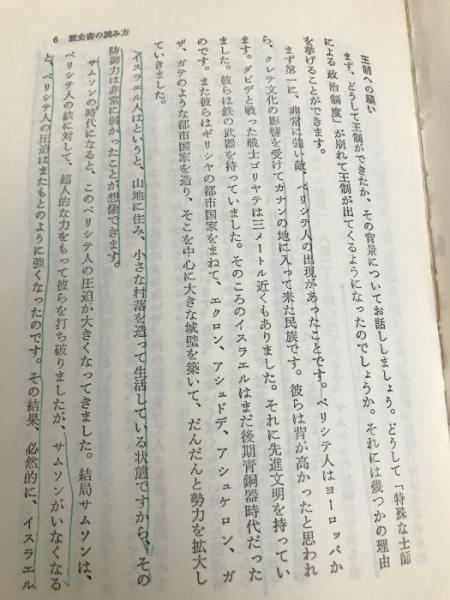 6 歴史書の読み方
王制への願い
まず、どうして王制ができたか、その背景についてお話ししましょう。どうして「特殊な士師
による政治制度」が崩れて王制が出てくるようになったのでしょうか。それには幾つかの理由
を挙げることができます。
まず第一に、非常に強い敵、ペリシテ人の出現があったことです。ペリシテ人はヨーロッパか
ら、クレテ文化の影響を受けてカナンの地に入って来た民族です。彼らは背が高かったと思われ
ます。ダビデと戦った戦士ゴリヤテは三メートル近くもありました。それに先進文明を持ってい
ました。彼らは鉄の武器を持っていました。そのころのイスラエルはまだ後期青銅器時代だった
のです。また彼らはギリシヤの都市国家をまねて、エクロン、アシュドデ、アシュケロン、ガ
ザ、ガテのような都市国家を造り、そこを中心に大きな城壁を築いて、だんだんと勢力を拡大し
ていきました。
イスラエル人はというと、山地に住み、小さな村落を造って生活している状態ですから、その
防御力は非常に弱かったことが想像できます。
サムソンの時代になると、このペリシテ人の圧迫が大きくなってきました。結局サムソンは、
ペリシテ人の鉄に対して、超人的な力をもって彼らを打ち破りましたが、サムソンがいなくなる
と、ペリシテ人の圧迫はまたもとのように強くなったのです。その結果、必然的に、イスラエル